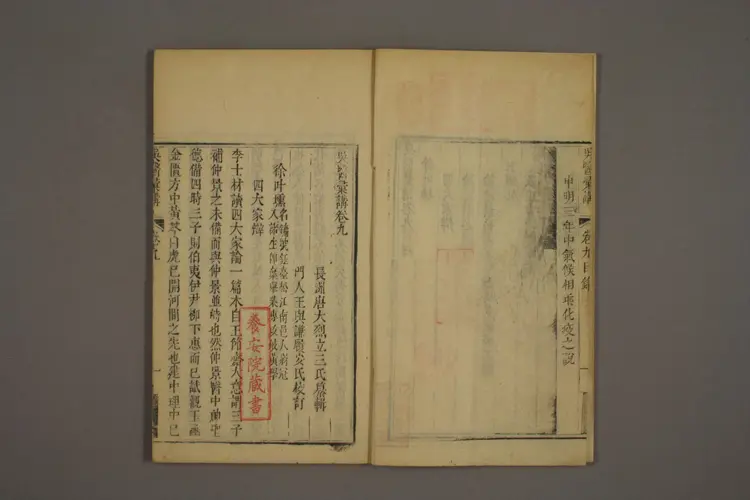 吳醫彙講卷九目錄
申明三年中氣候相乘化疫之說
吳醫彙講卷九
長洲唐大烈立三氏纂輯
門人王與謙願安氏校訂
徐叶壎
四大家辨
李士材讀四大家論一篇本自王節齋大意謂三子
補仲景之未備而與仲景並峙也然仲景醫中之聖
德備四時三子則伯夷伊尹柳下惠而已試觀玉函
金匱方中黃芩白虎已開河間之先也建中理中已
吳醫彙講
卷九
一
養安院藏書